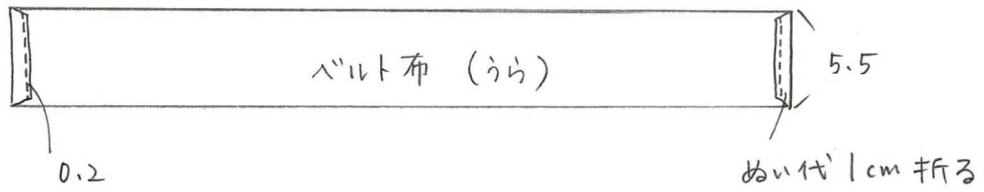 ベルト布 (うら)
5.5
0.2
ぬい代 1cm 折る